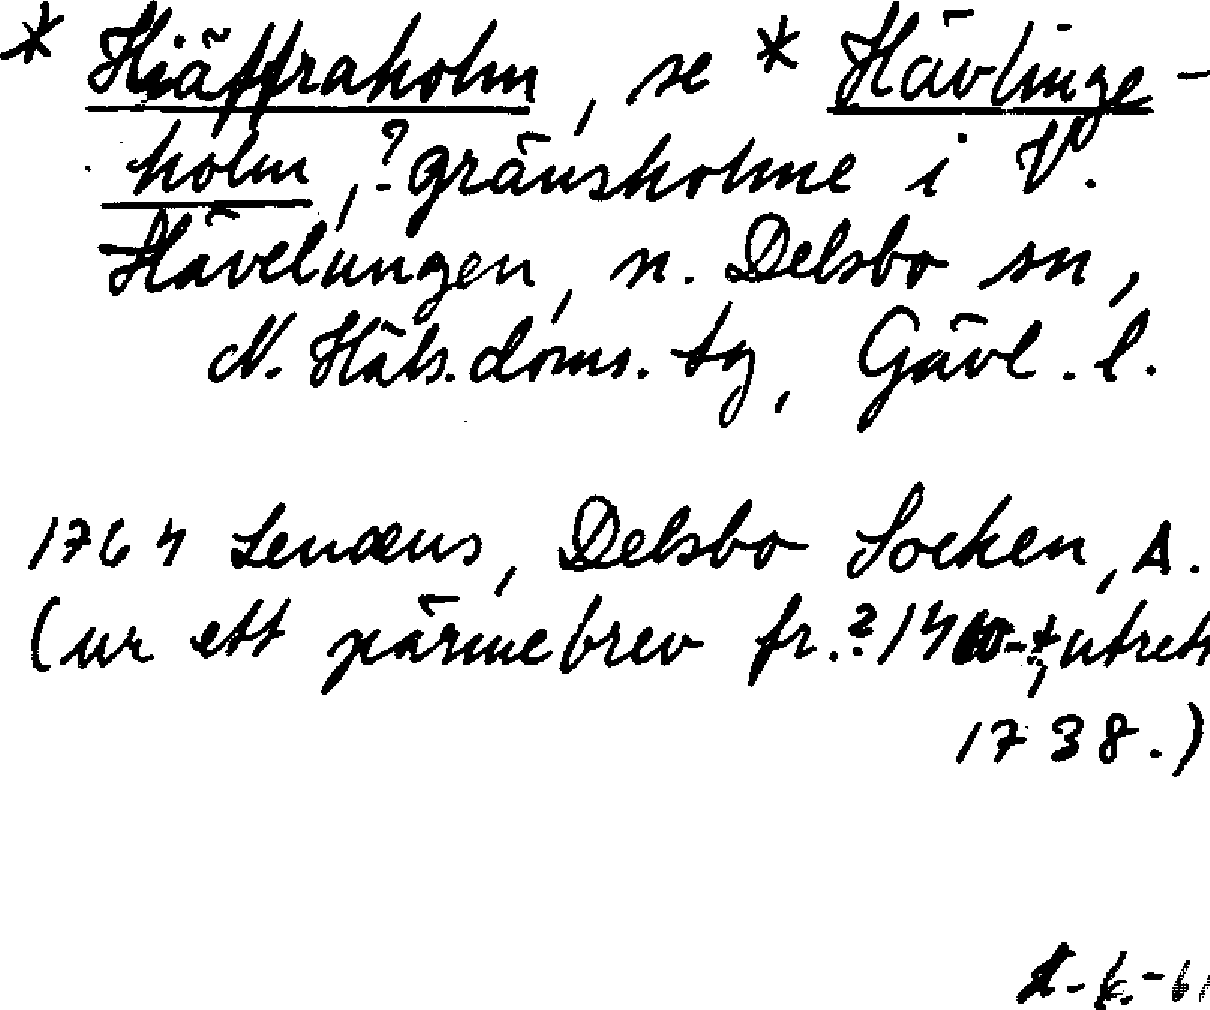 * Hiäffraholm, se * Hävlinge-
holm, ? gränsholme i V.
Hävelungen, n. Delsbo sn,
N. Häls. doms. tg, Gävl. l.
1764 Lenæus, Delsbo Socken,
(ur ett pärmebrev fr. ? 1400-t,
1738.)